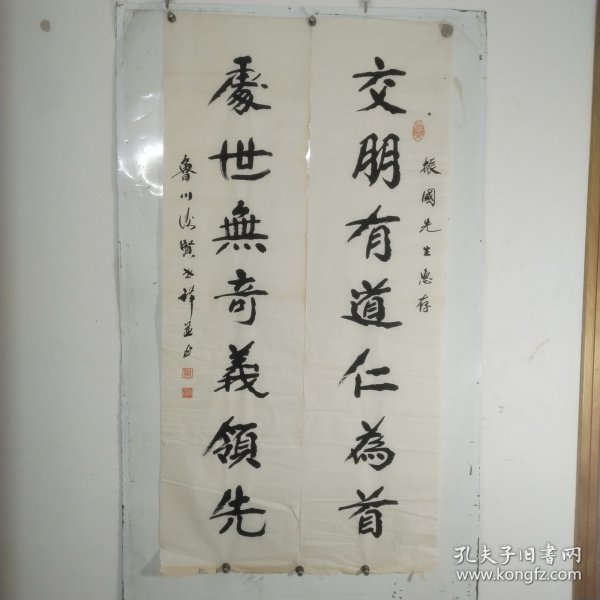 交朋有道仁為首
振國先生惠存
處世無奇義領先
孔夫子旧书网
www.kongfz.com